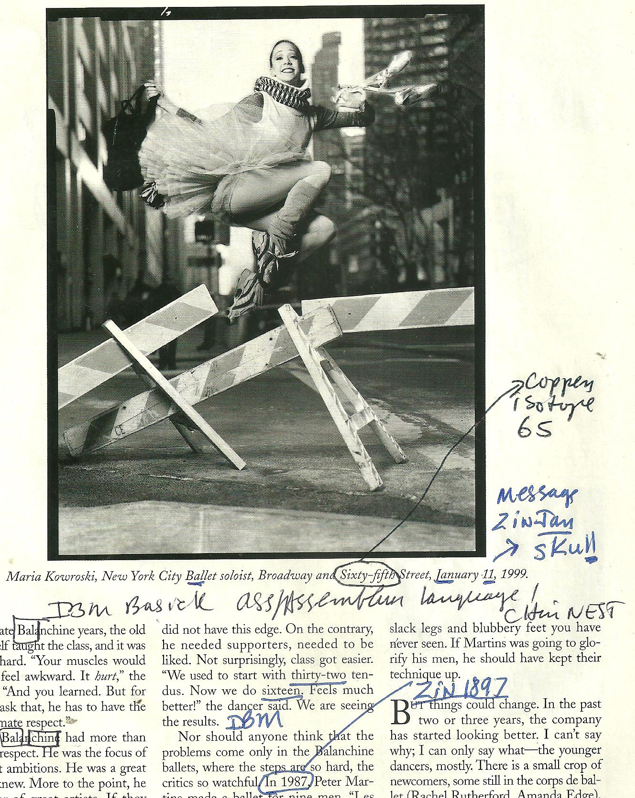 Copper
Isotope
65
Message
Zin Jan
→ Skull
Maria Kowroski, New York City Ballet soloist, Broadway and Sixty-fifth Street, January 11, 1999.
DBM Basick ass/Assembler language!
Chin NEST
ate Balanchine years, the old
elf taught the class, and it was
hard. “Your muscles would
feel awkward. It hurt,” the
“And you learned. But for
ask that, he has to have the
mate respect.”
Balanchine had more than
respect. He was the focus of
t ambitions. He was a great
knew. More to the point, he
did not have this edge. On the contrary,
he needed supporters, needed to be
liked. Not surprisingly, class got easier.
“We used to start with thirty-two ten-
dus. Now we do sixteen. Feels much
better!” the dancer said. We are seeing
the results. DBM
Nor should anyone think that the
problems come only in the Balanchine
ballets, where the steps are so hard, the
critics so watchful. In 1987, Peter Mar-
tins made a ballet for nine men, “Les
slack legs and blubbery feet you have
never seen. If Martins was going to glo-
rify his men, he should have kept their
technique up.
Zin 1897
But things could change. In the past
two or three years, the company
has started looking better. I can’t say
why; I can only say what—the younger
dancers, mostly. There is a small crop of
newcomers, some still in the corps de bal-
let (Rachel Rutherford, Amanda Edge),